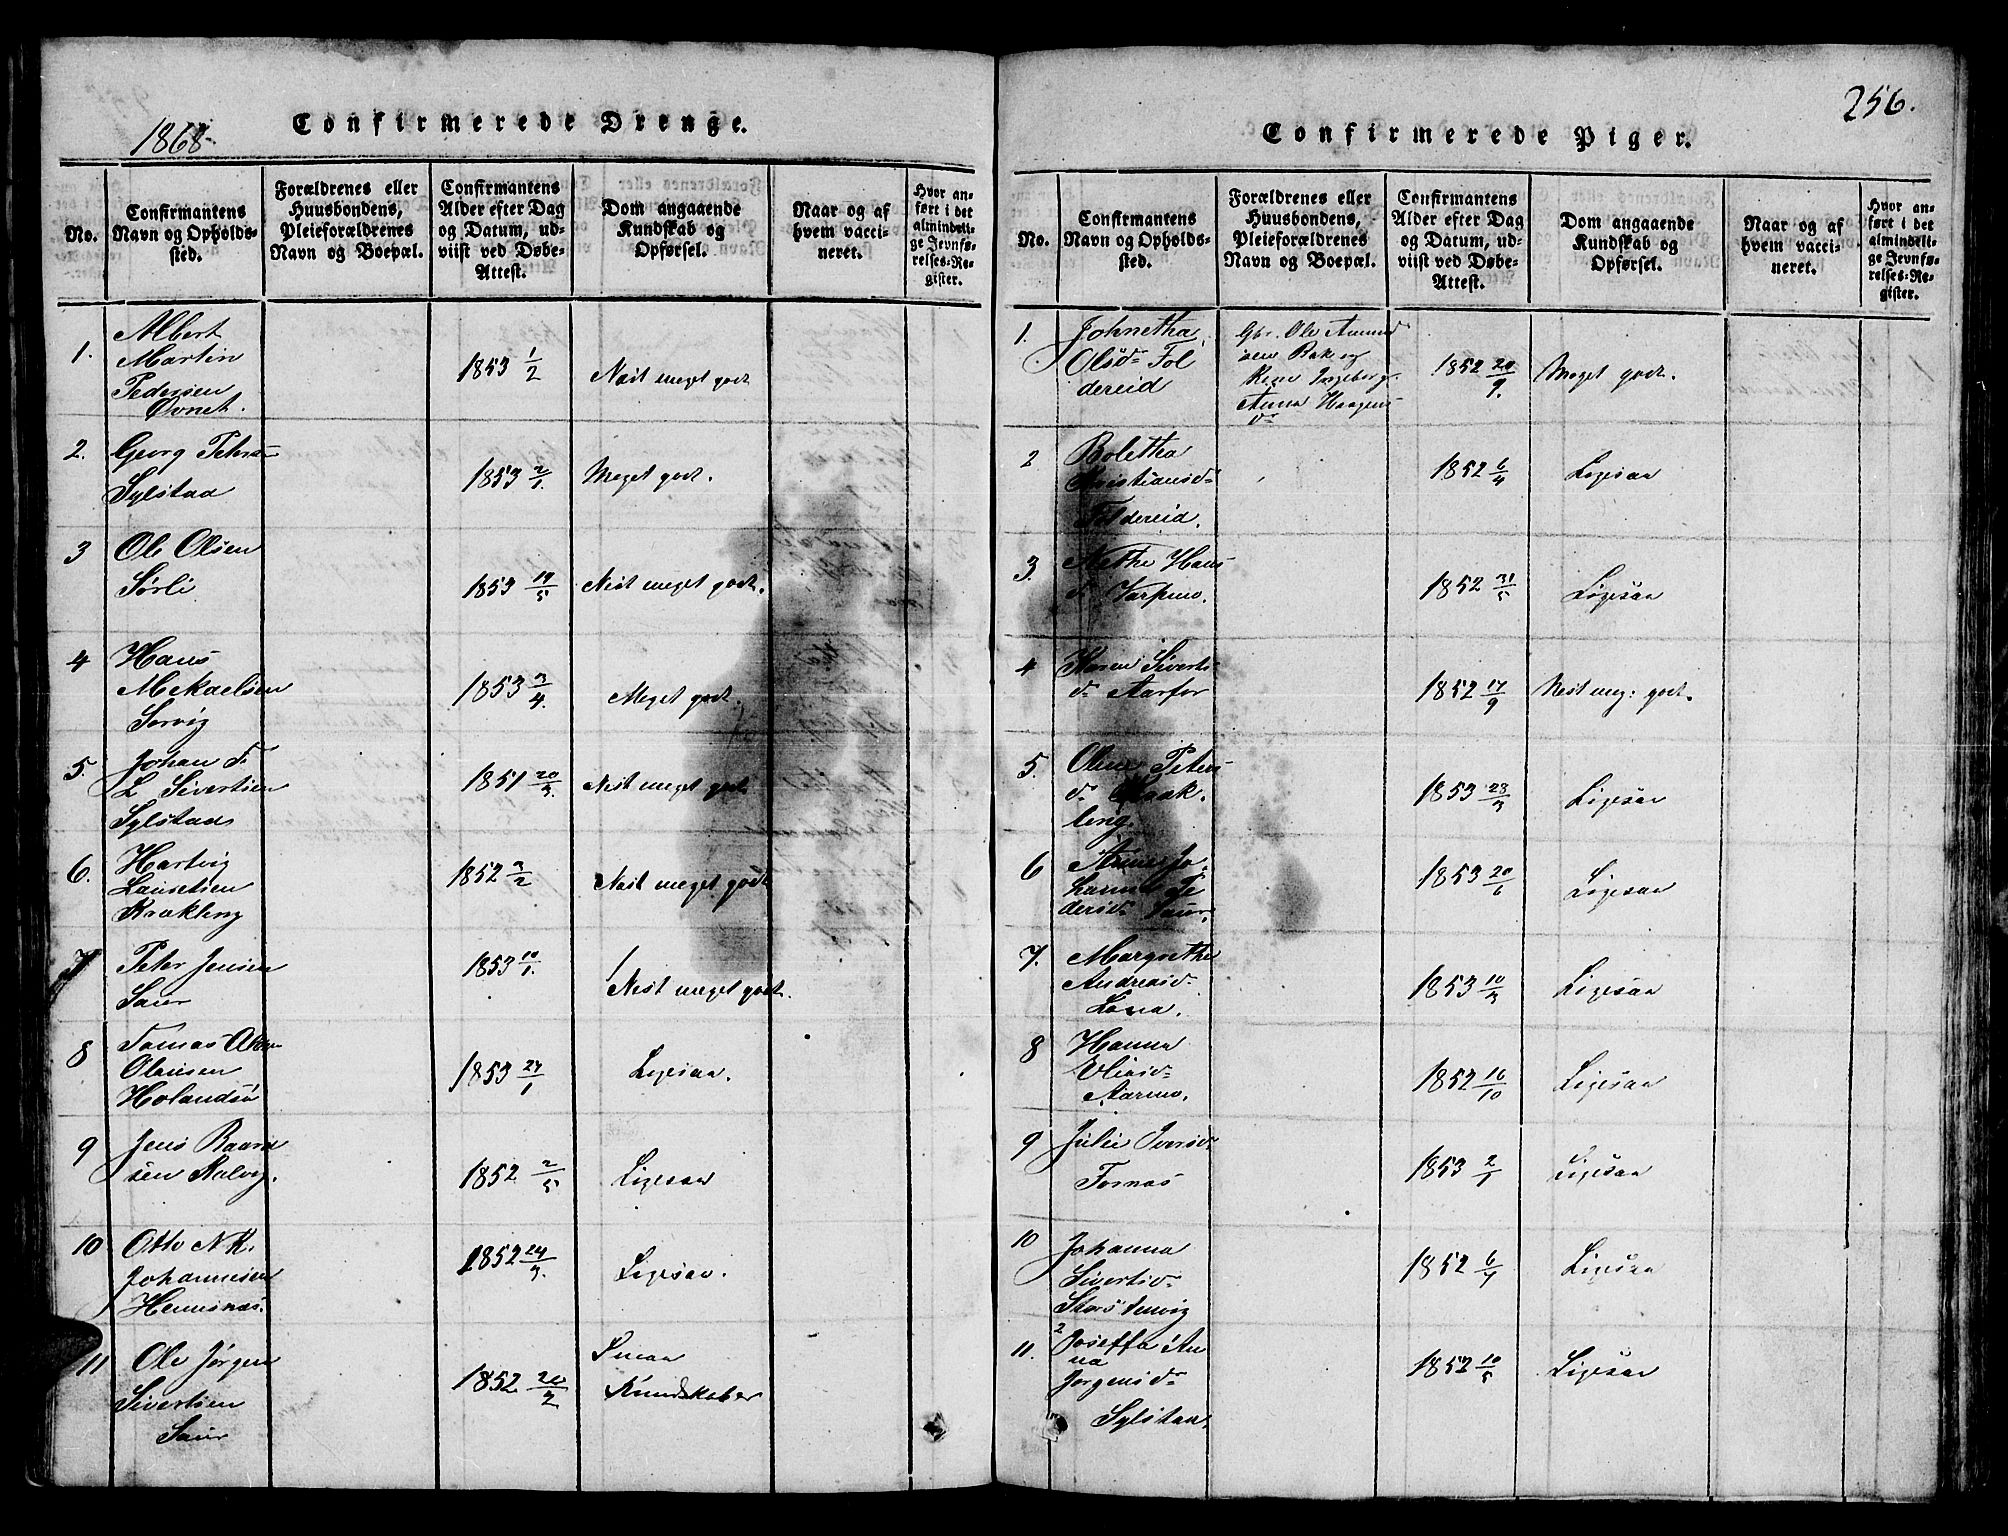 1868
Confirmerede Drenge.
No.
Confirmantens
Navn og Opholds-
sted.
Forældrenes eller
Huusbondens,
Pleieforældrenes
Navn og Boepæl.
Confirmantens
Alder efter Dag
og Datum, ud-
viist ved Døbe-
Attest.
Dom angaaende
Kundskab og
Opførsel.
Naar og af
hvem vacci-
neret.
Hvor an-
ført i det
almindeli-
ge Jevnfø-
relses-Re-
gister.
1.
Albert
Martin
Pedersen
Ovnet.
1853 1/2
Nest meget godt
2.
Georg Peters
Sylstad
1853 2/1.
Meget godt.
3
Ole Olsen
Sørli
1853 19/5
Nest meget godt.
4
Hans
Mekaelsen
Sørvig
1853 3/4.
Meget godt.
5.
Johan F.
L Sivertsen
Sylstad
1851 20/3.
Nest meget godt
6.
Hartvig
Lausetsen
Kraakling
1852 3/2
Nest meget godt
7
Peter Jensen
Saur
1853 10/1.
Nest meget godt.
8
Tomas
Olausen
Holandsø
1853 24/1
Ligesaa.
9
Jens Baard
sen Kalvig.
1852 2/5
Ligesaa
10
Otto N K.
Johannesen
Hennesnes.
1852 24/3.
Ligesaa.
11
Ole Jørgen
Sivertsen
Saur
1852 20/2
Smaa
Kundskaber
256.
Confirmerede Piger.
No.
Confirmantens
Navn og Opholds-
sted.
Forældrenes eller
Huusbondens,
Pleieforældrenes
Navn og Boepæl.
Confirmantens
Alder efter Dag
og Datum, ud-
viist ved Døbe-
Attest.
Dom angaaende
Kundskab og
Opførsel.
Naar og af
hvem vacci-
neret.
Hvor an-
ført i det
almindeli-
ge Jevnfø-
relses-Re-
gister.
1.
Johnetha
Olsd. Fol
dereid
Gbr. Ole Amund
sens Bak og
Ingeberg
Anna Haagens
d.
1852 20/9.
Meget godt.
2
Boletha
Kristiansd.
Foldereid.
1852 6/4
Ligesaa
3.
Nethe Hans
d. Varpmo.
1852 31/5
Ligesaa
4
Karen Siverts
d. Aarfor
1852 17/9
Nest meg: godt.
5.
Oline Peters
d. Kraak
leng.
1853 28/3
Ligesaa
6
Anne Jo
hanna Pe
dersd. Saur.
1853 20/6
Ligesaa
7.
Margrethe
Andreasd.
Lona.
1853 10/3
Ligesaa
8
Hanna
Eliasd.
Aarmo.
1852 16/10
Ligesaa
9
Julie Iversd.
Fornes
1853 2/1
Ligesaa
10
Johanna
Sivertsd.
Storstenvig
1852 6/7
Ligesaa
11.
Joseffa An
na
Jørgensd.
Sylstad.
1852 10/5
Ligesaa